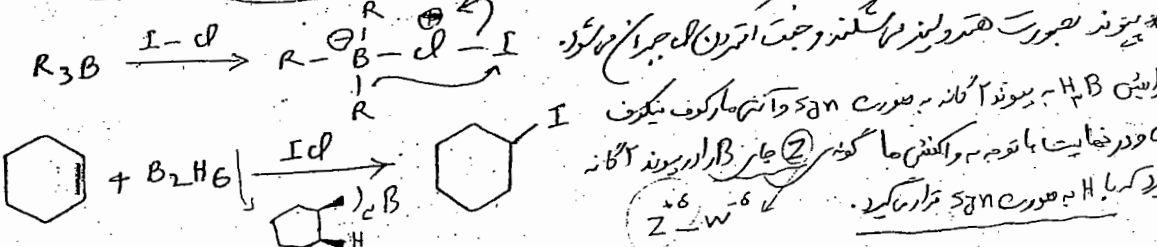 R₃B I-Cl → R-B⊖-Cl⊕-I R R
پیوند بصورت هترولیز می‌شکند و جفت الکترون Cl جبران می‌شود.
B به پیوند ۲ گانه به صورت syn و آنتی مارکوف نیکوف
و در نهایت با توجه به واکنش ما گونه‌ی Z جای B را در پیوند ۲ گانه
که با H به صورت syn قرار می‌گیرد.
+ B₂H₆ ICl → I
)₂B H
Z⁺δ-W⁻δ